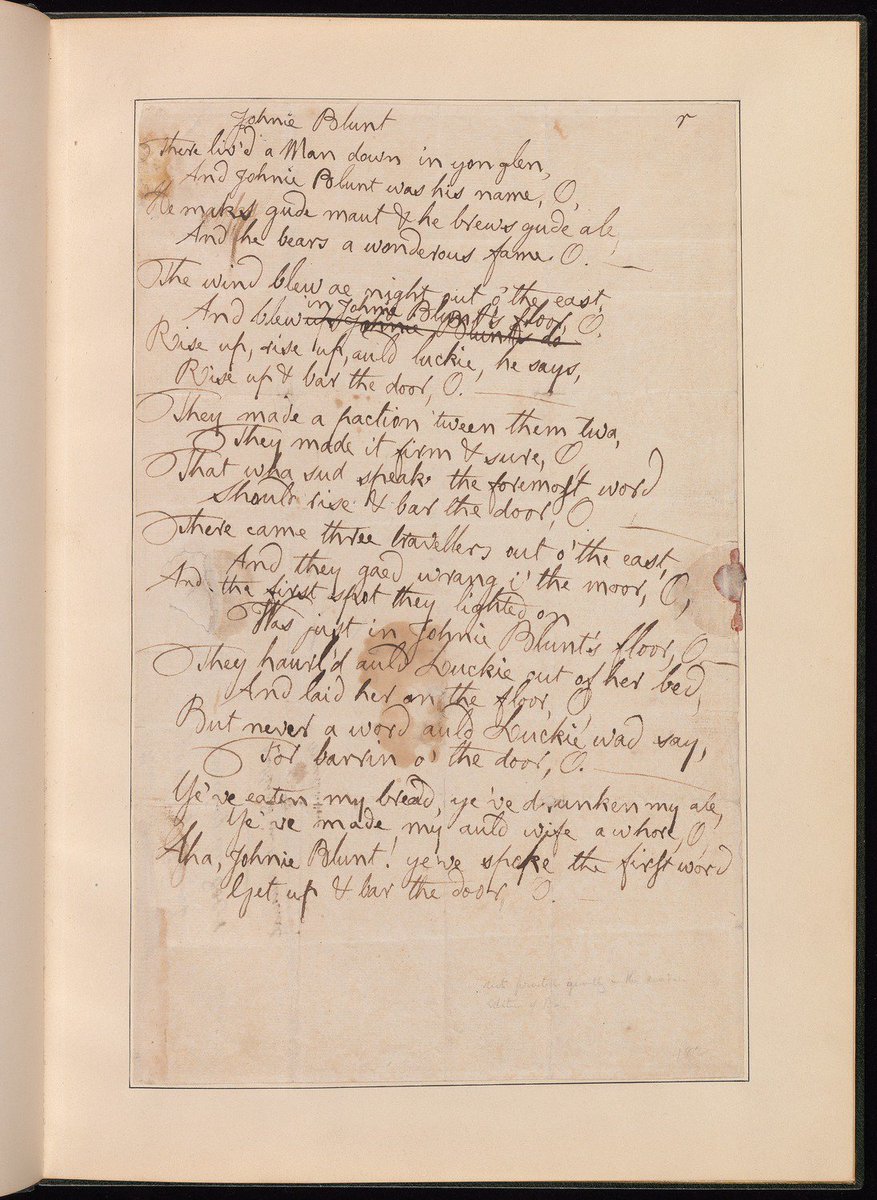 Johnie Blunt
r
There liv'd a Man down in yon glen,
And Johnie Blunt was his name, O,
He maks gude maut & he brews gude ale,
And he bears a wonderous fame O.
The wind blew ae night out o' the east,
And blew in Johnie Blunt's floor, O.
Johnie Blunt's do
Rise up, rise up, auld luckie, he says,
Rise up & bar the door, O.
They made a paction 'tween them twa,
They made it firm & sure, O,
That wha sud speak the foremost word
Should rise & bar the door, O
There came three travellers out o' the east,
And they gaed wrang i' the moor, O,
And the first spot they lighted on
Was just in Johnie Blunt's floor, O
They haurl'd auld Luckie out of her bed,
And laid her on the floor, O
But never a word auld Luckie wad say,
For barrin o' the door, O.
Ye've eaten my bread, ye've drunken my ale,
Ye've made my auld wife a whore, O,
Aha, Johnie Blunt! ye've spoke the first word
Get up & bar the door, O.